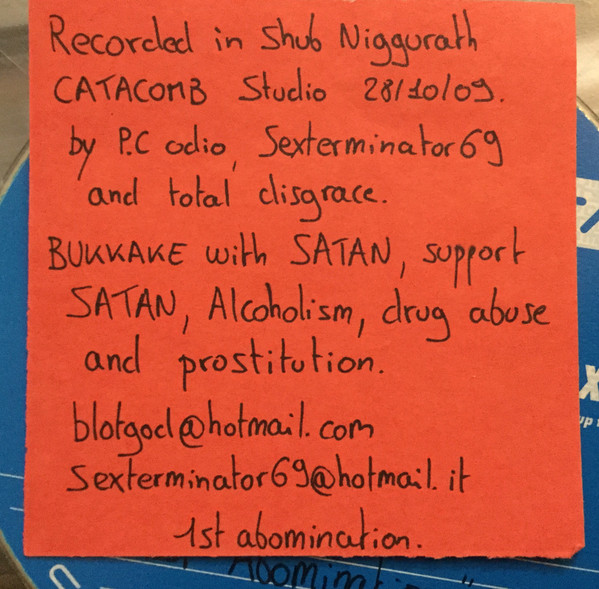 Recorded in Shub Niggurath
CATACOMB Studio 28/10/09.
by P.C odio, Sexterminator69
and total disgrace.
BUKKAKE with SATAN, support
SATAN, Alcoholism, drug abuse
and prostitution.
blotgod@hotmail.com
Sexterminator69@hotmail.it
1st abomination.